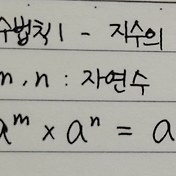 수법칙 1 - 지수의
m, n : 자연수
a^m × a^n = a